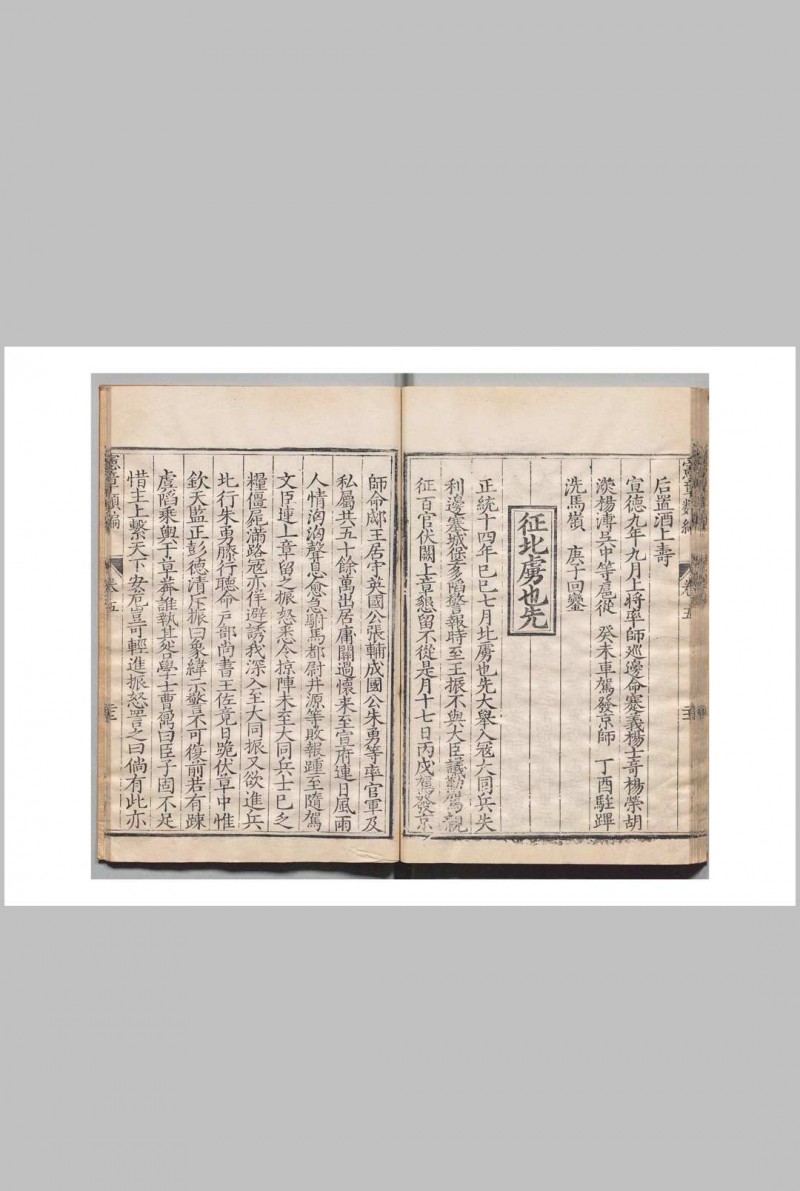 憲章類編
卷五
后置酒上壽
宣德九年九月上將率師巡邊命蹇義楊士竒楊榮胡
濙楊溥吳中等扈從 癸未車駕發京師 丁酉駐蹕
洗馬嶺 庚子回鑾
征北虜也先
正統十四年己巳七月北虜也先大舉入冦大同兵失
利邊塞城堡多陷警報時至王振不與大臣議勸駕親
征百官伏闕上章懇留不從是月十七日丙戌駕發京
師命郕王居守英國公張輔成國公朱勇等率官軍及
私屬共五十餘萬出居庸關過懷来至宣府連日風雨
人情洶洶聲息愈急駙馬都尉井源等敗報踵至隨駕
文臣連上章留之振怒悉令掠陣未至大同兵士已乏
糧僵屍滿路冦亦佯避誘我深入至大同振又欲進兵
北行朱勇膝行聽命戸部尚書王佐竟日跪伏草中惟
欽天監正彭德清斥振曰象緯示警不可復前若有踈
虞陷乘輿于草莽誰執其咎學士曹鼐曰臣子固不足
惜主上繫天下安危豈可輕進振怒詈之曰倘有此亦
憲章類編
卷五